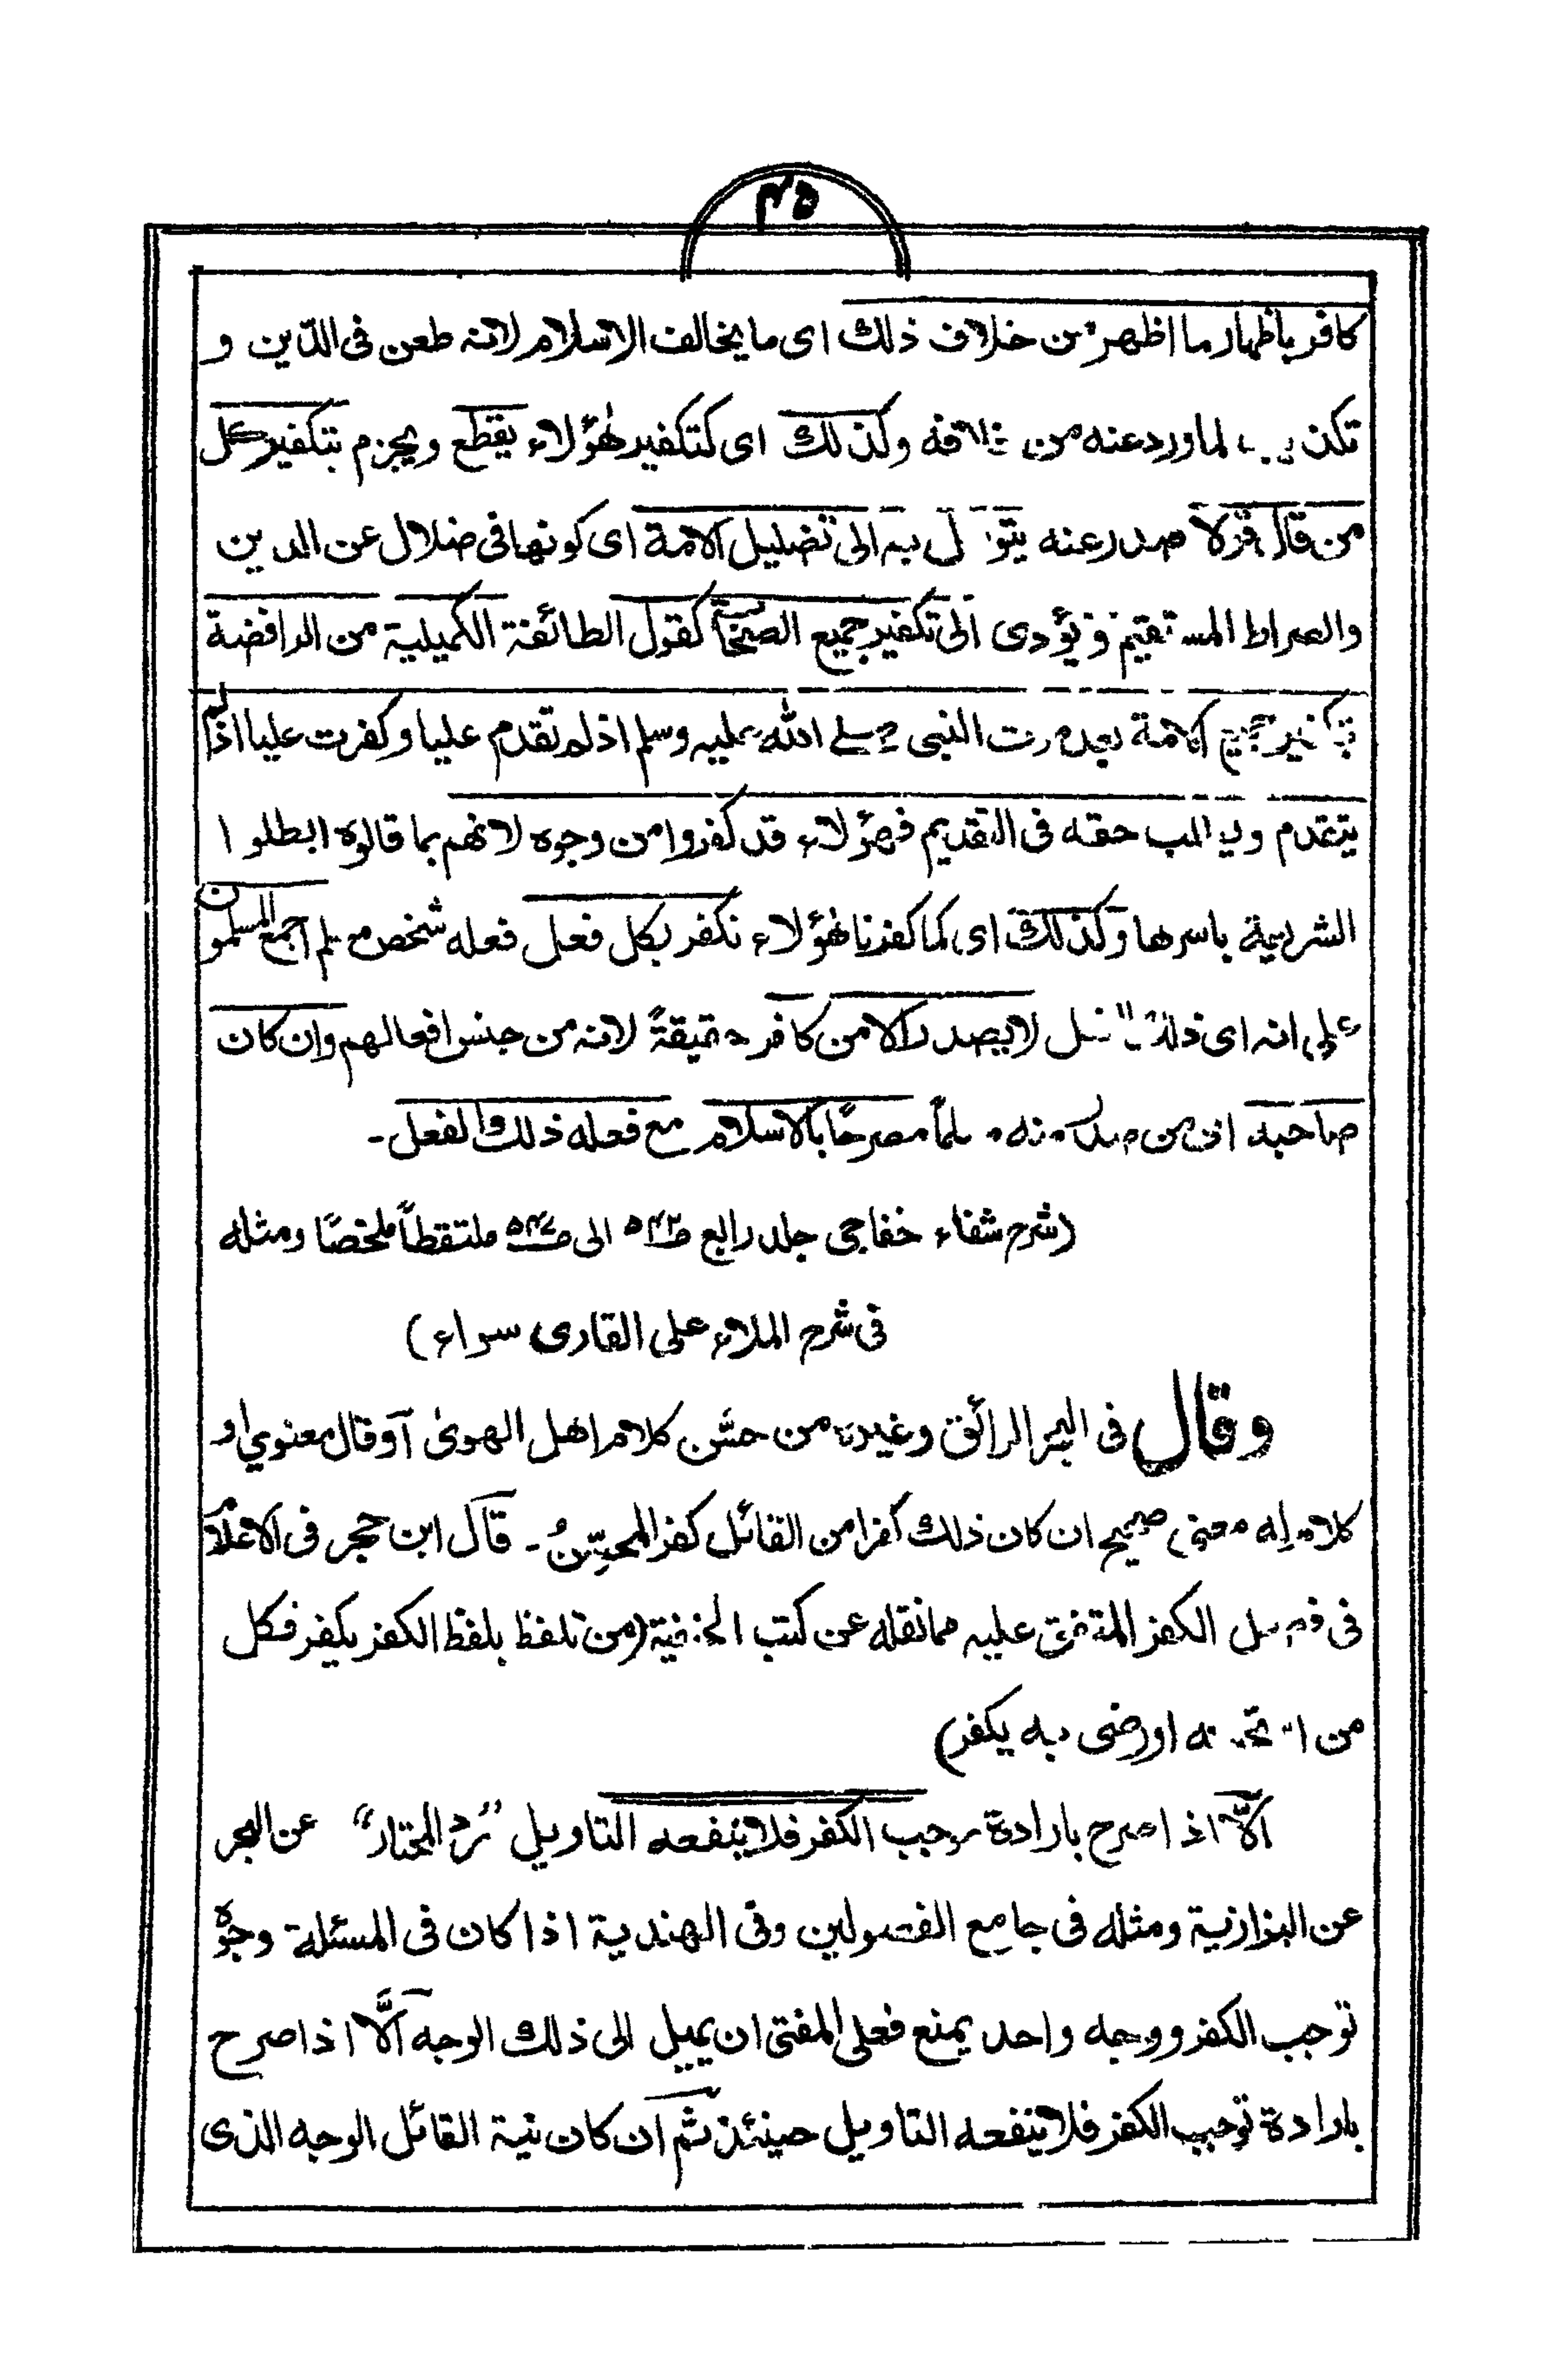 ۴۵
كافر باظهار ما اظهر من خلاف ذلك اى ما يخالف الاسلام لانه طعن فى الدّين و
تكذيب لما ورد عنه من خلافه وكذلك اى كتكفير هٰؤلاء يقطع ويجزم بتكفير كل
من قال قولاً صدر عنه يتوسل به الى تضليل الامة اى كونها فى ضلال عن الدين
والصراط المستقيم ويؤدى الى تكفير جميع الصحابة كقول الطائفة الكميلية من الرافضة
بتكفير جميع الامة بعد موت النبى صلے الله عليه وسلم اذ لم تقدم عليا وكفرت عليا اذ لم
يتقدم ويطلب حقه فى التقديم فهؤلاء قد كفروا من وجوه لانهم بما قالوه ابطلوا
الشريعة باسرها وكذلك اى كما كفرنا هٰؤلاء نكفر بكل فعل فعله شخص مسلم اجمع المسلمون
على انه اى ذلك الفعل لا يصدر الا من كافر حقيقةً لانه من جنس افعالهم وان كان
صاحبه اى من صدر منه مسلماً مصرحًا بالاسلام مع فعله ذلك الفعل ـ
(شرح شفاء خفاجى جلد رابع ص۵۴۲ الى ص۵۴۷ ملتقطاً ملخصًا ومثله
فى شرح الملاء على القارى سواء)
وقال فى البحر الرائق وغيره من حسَّن كلام اهل الهوىٰ آو قال معنوي او
كلام له معنى صحيح ان كان ذلك كفرا من القائل كفر المحسِّنُ ـ قال ابن حجر فى الاعلام
فى فصل الكفر المتفق عليه مما نقله عن كتب الحنفية (من تلفظ بلفظ الكفر يكفر فكل
من استحسنه او رضى به يكفر)
اَلّا اذا صرح بارادة موجب الكفر فلا ينفعه التاويل "ردّ المحتار" عن البحر
عن البزازية ومثله فى جامع الفصولين وفى الهندية اذا كان فى المسئلة وجوه
توجب الكفر ووجه واحد يمنع فعلى المفتى ان يميل الى ذلك الوجه اَلَّا اذا صرح
بارادة توجب الكفر فلا ينفعه التاويل حينئذ ثم ان كان نية القائل الوجه الذى